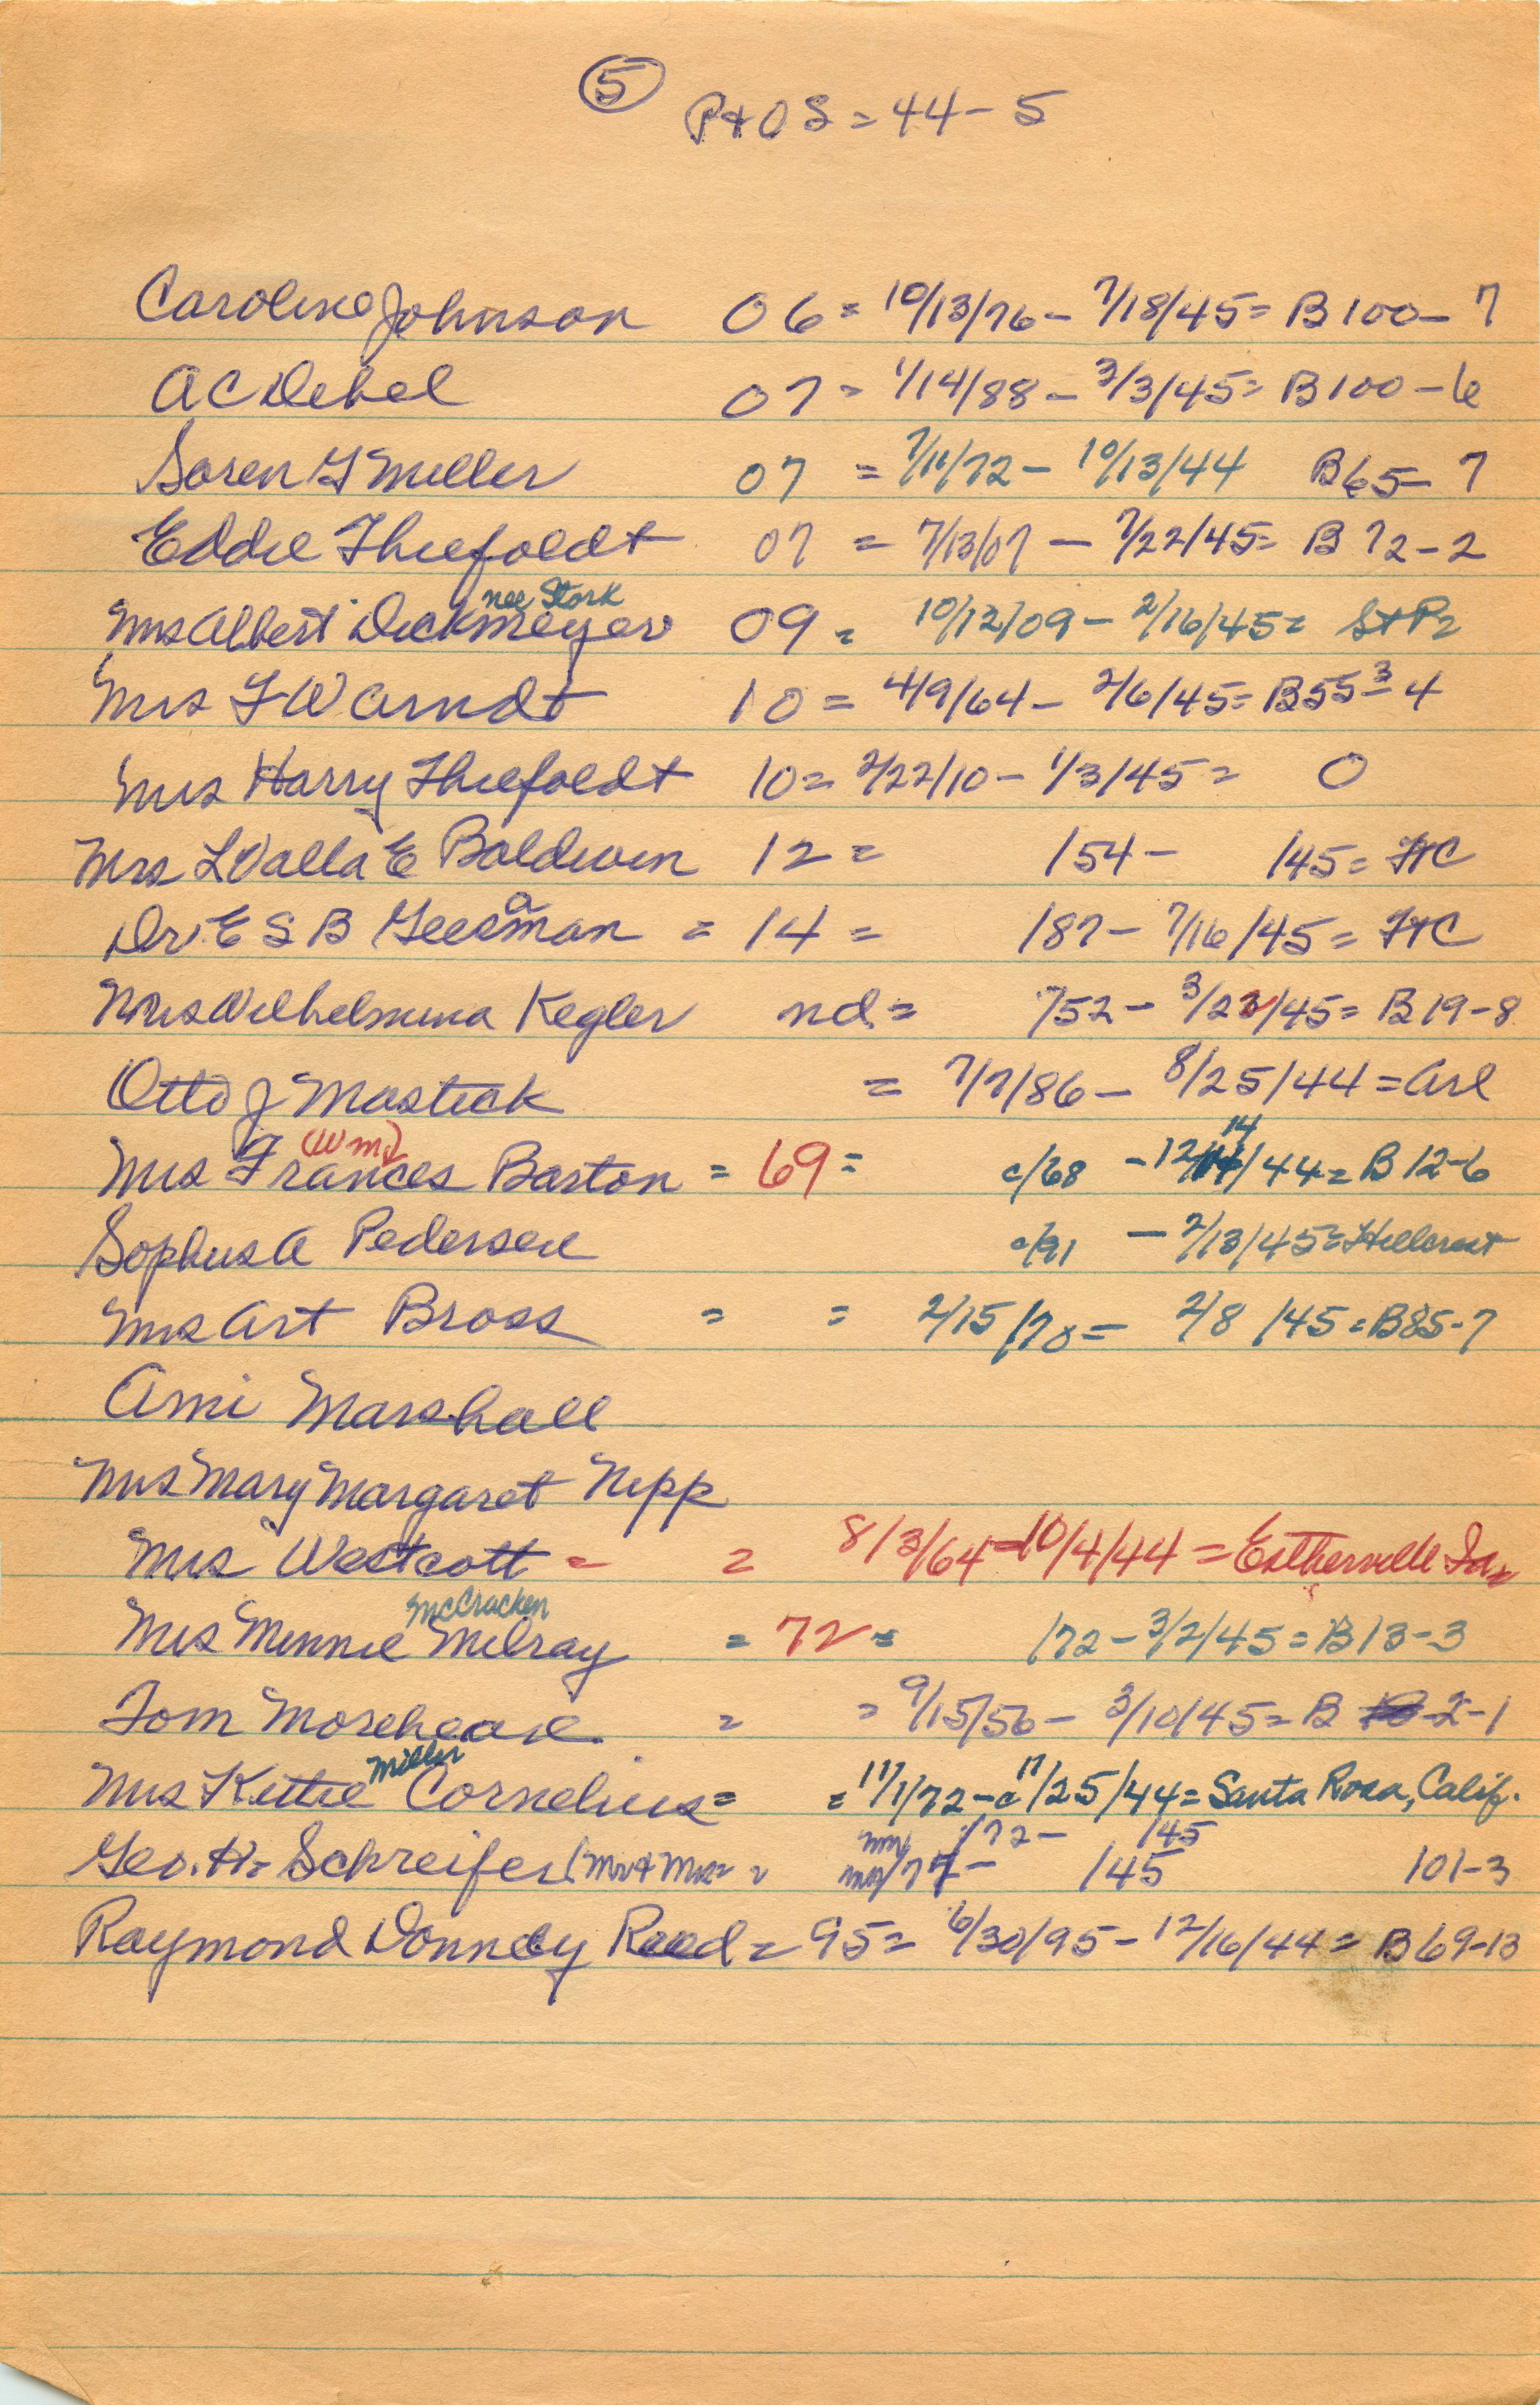 5
P+OS = 44-5
Caroline Johnson 06 = 10/13/76 - 7/18/45 = B100-7
A C Debel 07 = 1/14/88 - 3/3/45 = B100-6
Soren G Miller 07 = 7/11/72 - 10/13/44 B65-7
Eddie Thiefoldt 07 = 7/13/07 - 7/22/45 = B72-2
nee Stork
Mrs Albert Dickmeyer 09 = 10/12/09 - 2/16/45 = St P2
Mrs F W Arndt 10 = 4/9/64 - 2/6/45 = B55-3-4
Mrs Harry Thiefoldt 10 = 2/22/10 - 1/3/45 = 0
Mrs L Walla E Baldwin 12 = /54 - /45 = FtC
Dr. E S B Geesaman = 14 = /87 - 7/16/45 = FtC
Mrs Wilhelmina Kegler nd = /52 - 3/22/45 = B19-8
Otto J Mastick = 7/7/86 - 8/25/44 = Arl
(Wm)
Mrs Frances Barton = 69 = c/68 - 12/14/44 = B12-6
Sophus A Pedersen c/91 - 2/13/45 = Hillcrest
Mrs Art Bross = = 2/15/70 = 2/8/45 = B85-7
Ami Marshall
Mrs Mary Margaret Nipp
Mrs Westcott = = 8/3/64 - 10/4/44 = Estherville Ia
McCracken
Mrs Minnie Milray = 72 = /72 - 3/2/45 = B13-3
Tom Morehead = = 9/15/56 - 3/10/45 = B 2-1
Miller
Mrs Kittie Cornelius = = 11/1/72 - c 11/25/44 = Santa Rosa, Calif.
/72 - /45
Geo. H. Schreifer (Mr + Mrs = = /77 - /45 101-3
Raymond Donndy Reed = 95 = 6/30/95 - 12/16/44 = B69-13